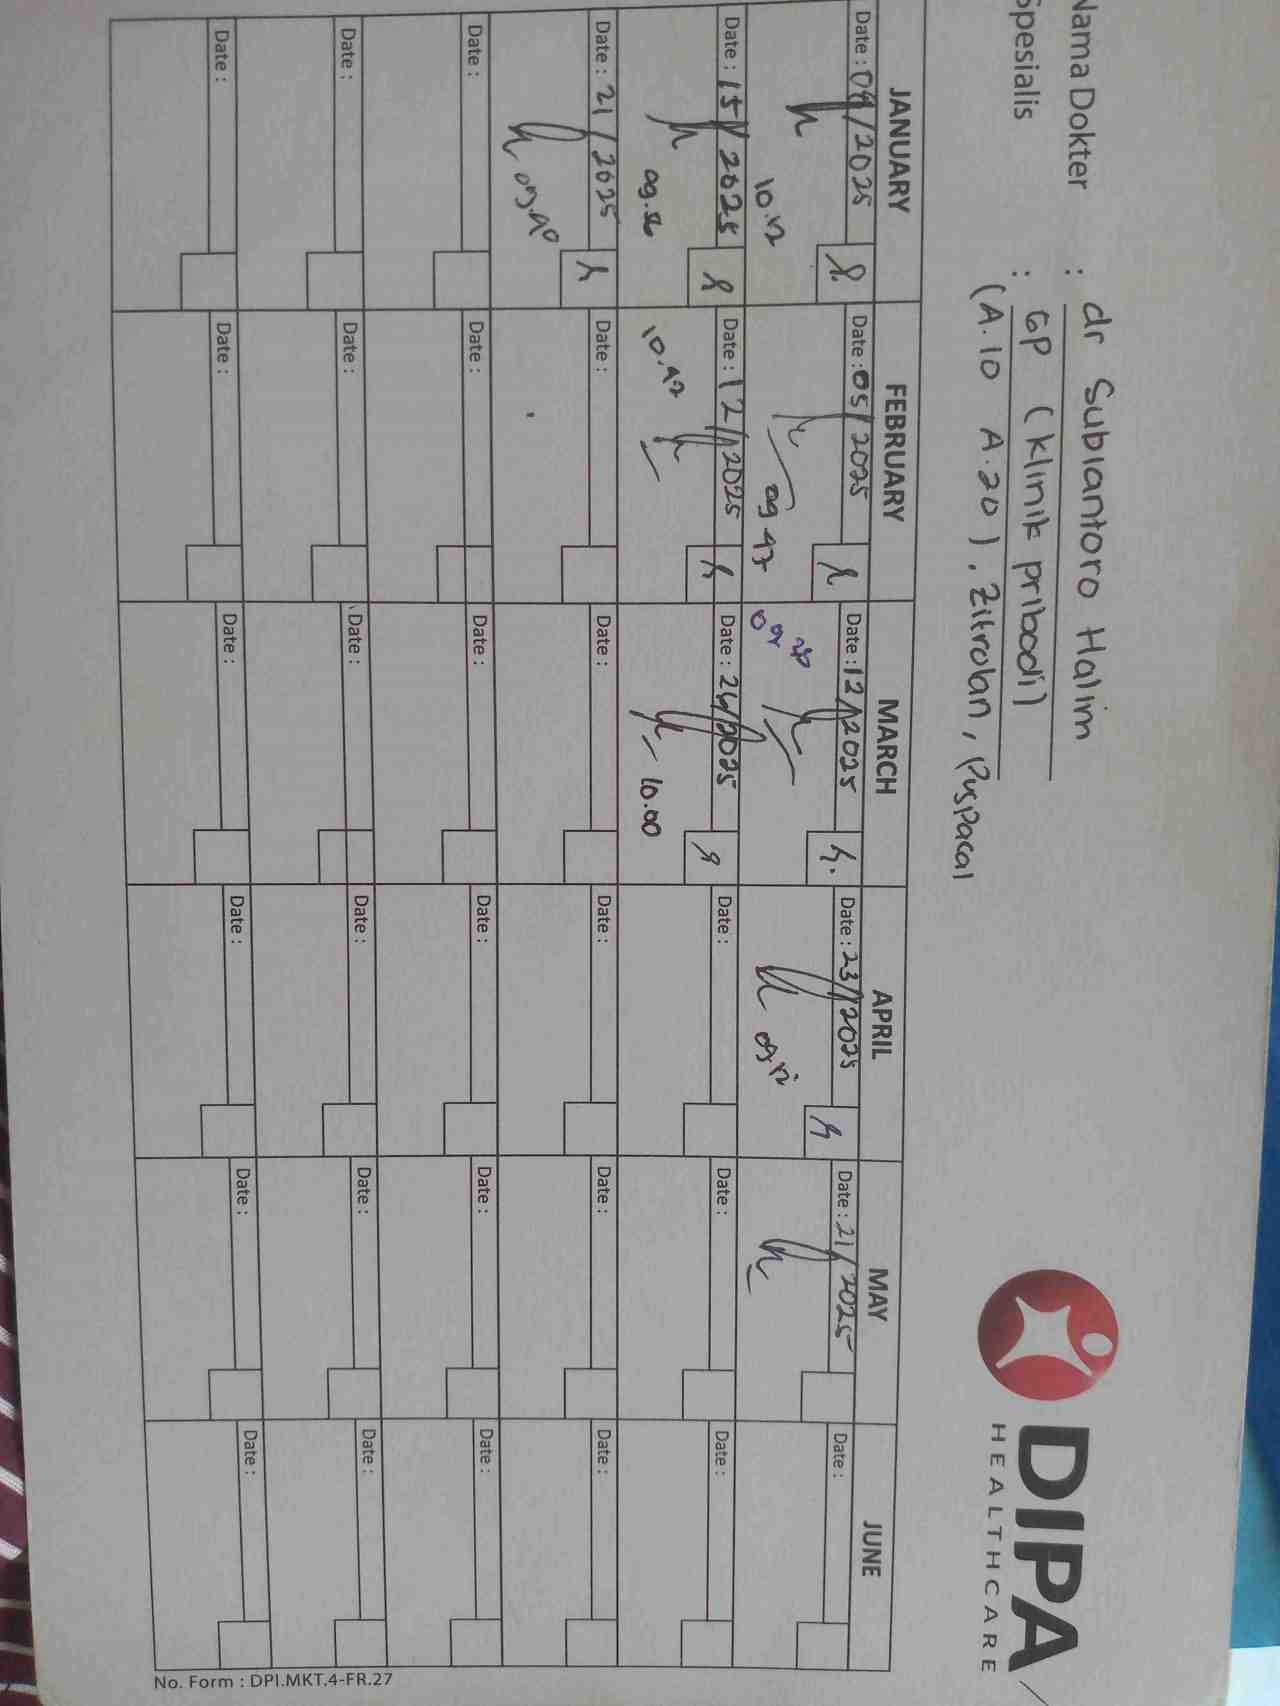 Nama Dokter : dr Subiantoro Halim
Spesialis : GP (Klinik pribadi)
(A.10 A.20), Zitrolan, Puspacal
DIPA
HEALTHCARE
JANUARY FEBRUARY MARCH APRIL MAY JUNE
Date : /2025 Date : 05/2025 Date : 12/2025 Date : 23/2025 Date : 21/2025 Date :
10.12 09.47 09
Date : 15/2025 Date : 12/2025 Date : 26/2025 Date : Date : Date :
10.42 10.00
Date : 21/2025 Date : Date : Date : Date : Date :
Date : Date : Date : Date : Date : Date :
Date : Date : Date : Date : Date : Date :
Date : Date : Date : Date : Date : Date :
No. Form : DPI.MKT.4-FR.27